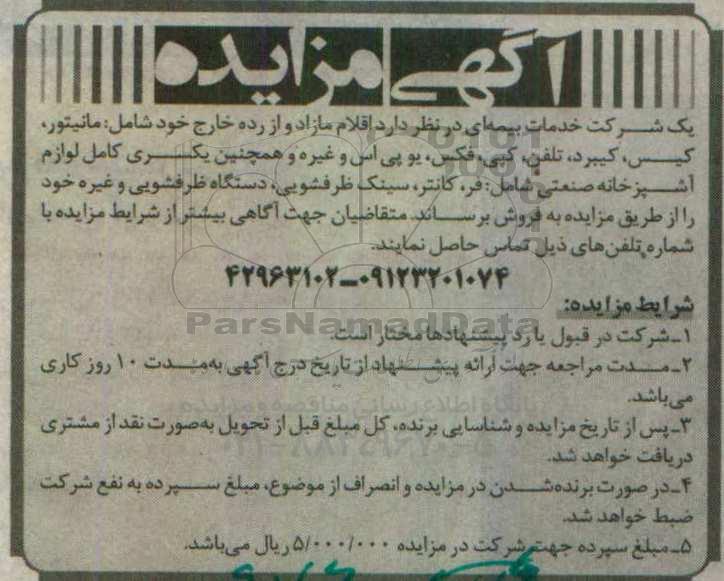 آگهی مزایده
یک شرکت خدمات بیمه‌ای در نظر دارد اقلام مازاد و از رده خارج خود شامل: مانیتور،
کیس، کیبرد، تلفن، کپی، فکس، یو پی اس و غیره و همچنین یکسری کامل لوازم
آشپزخانه صنعتی شامل: فر، کانتر، سینک ظرفشویی، دستگاه ظرفشویی و غیره خود
را از طریق مزایده به فروش برساند. متقاضیان جهت آگاهی بیشتر از شرایط مزایده با
شماره تلفن‌های ذیل تماس حاصل نمایند.
۰۹۱۲۳۲۰۱۰۷۴-۴۲۹۶۳۱۰۲
شرایط مزایده:
ParsNamadData
۱-شرکت در قبول یا رد پیشنهادها مختار است.
۲-مدت مراجعه جهت ارائه پیشنهاد از تاریخ درج آگهی به‌مدت ۱۰ روز کاری
می‌باشد.
۳-پس از تاریخ مزایده و شناسایی برنده، کل مبلغ قبل از تحویل به‌صورت نقد از مشتری
دریافت خواهد شد.
۴-در صورت برنده‌شدن در مزایده و انصراف از موضوع، مبلغ سپرده به نفع شرکت
ضبط خواهد شد.
۵-مبلغ سپرده جهت شرکت در مزایده ۵/۰۰۰/۰۰۰ ریال می‌باشد.